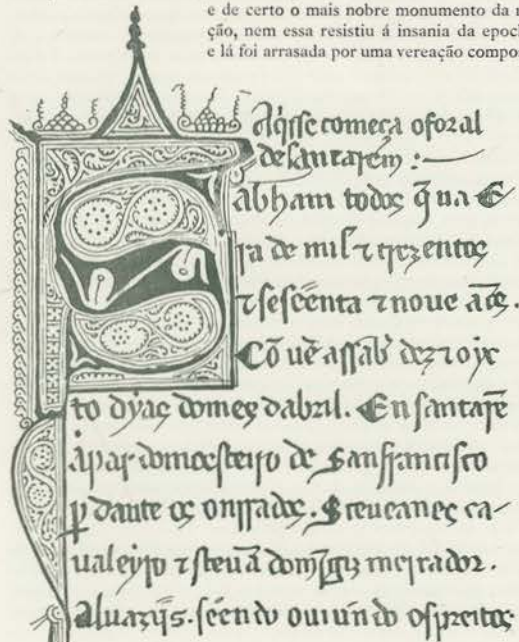 e de certo o mais nobre monumento da r
ção, nem essa resistiu á insania da epoch
e lá foi arrasada por uma vereação compo
Aq̃sse começa oforal
de santarem :—
Sabham todos q̃ na E
ra de mil ⁊ trezentos
⁊ sescẽenta ⁊ noue ãos .
Cõ uẽ assab̃ dez ⁊ oyc
to dyas domes dabril. En santarẽ
apar domoesteyro de sanffrancisco
ꝑ dante os onrrados. Steueanes ca-
ualeyro ⁊ steuã dom̃gz mercador.
Aluazijs. seendo ouuindo ospreitos